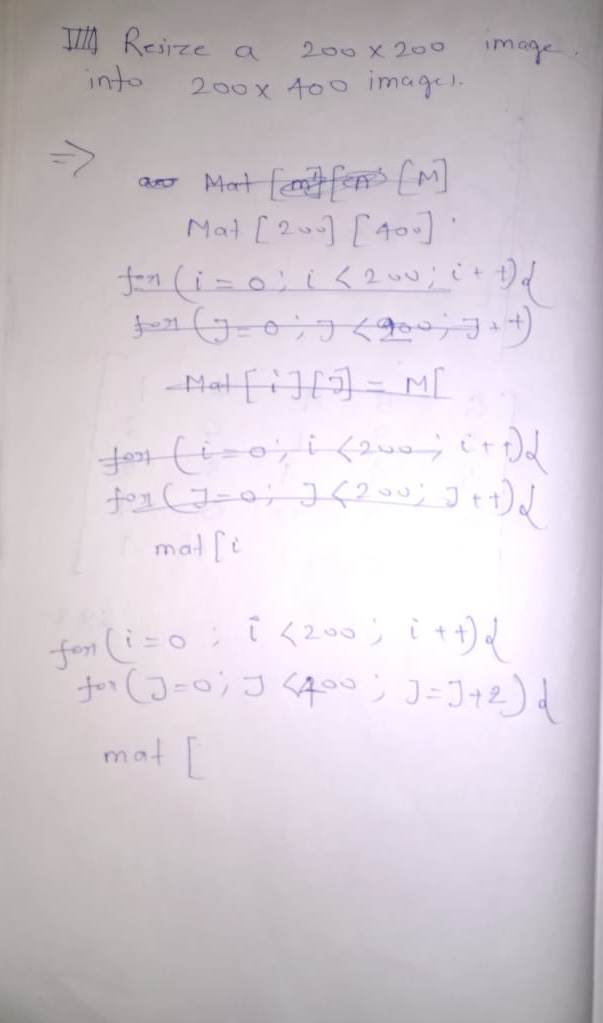 Resize a 200 x 200 image.
into 200 x 400 images.
=>
Mat [M]
Mat [200] [400]
for (i = 0; i < 200; i++) {
for (J = 0; J < 200; J++)
Mat [i] [J] = M[
for (i = 0; i < 200; i++) {
for (J = 0; J < 200; J++) {
mat [i
for (i = 0; i < 200; i++) {
for (J = 0; J < 400; J = J+2) {
mat [